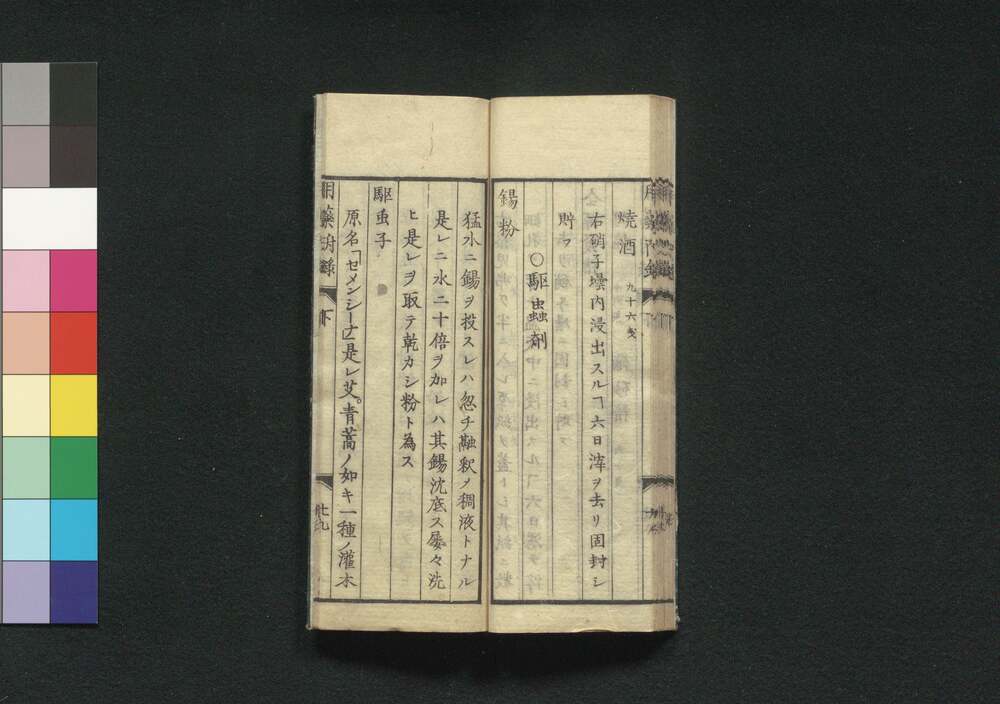 燒酒 九十六戔
右硝子壜内浸出スルヿ六日滓ヲ去リ固封シ
貯フ
〇驅蟲劑
錫粉
猛水ニ錫ヲ投スレハ忽チ融釈ノ稠液トナル
是レニ水二十倍ヲ加レハ其錫沈底ス屡々洗
ヒ是レヲ取テ乾カシ粉ト為ス
駆虫子
原名「セメンシーナ」是レ艾。青蒿ノ如キ一種ノ灌木
用藥術録 下